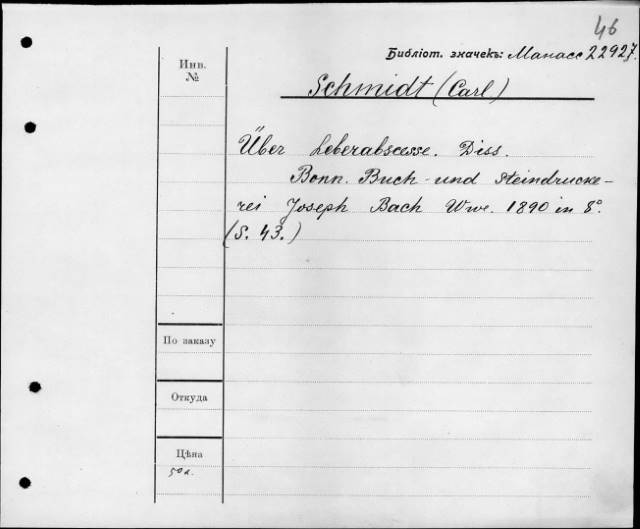 46
Библіот. значекъ: Манасс 22927.
Инв.
№
Schmidt (Carl)
Über Leberabscesse. Diss.
Bonn. Buch- und Steindrucke-
rei Joseph Bach Wwe. 1890 in 8°.
(S. 43.)
По заказу
Откуда
Цѣна
50 к.